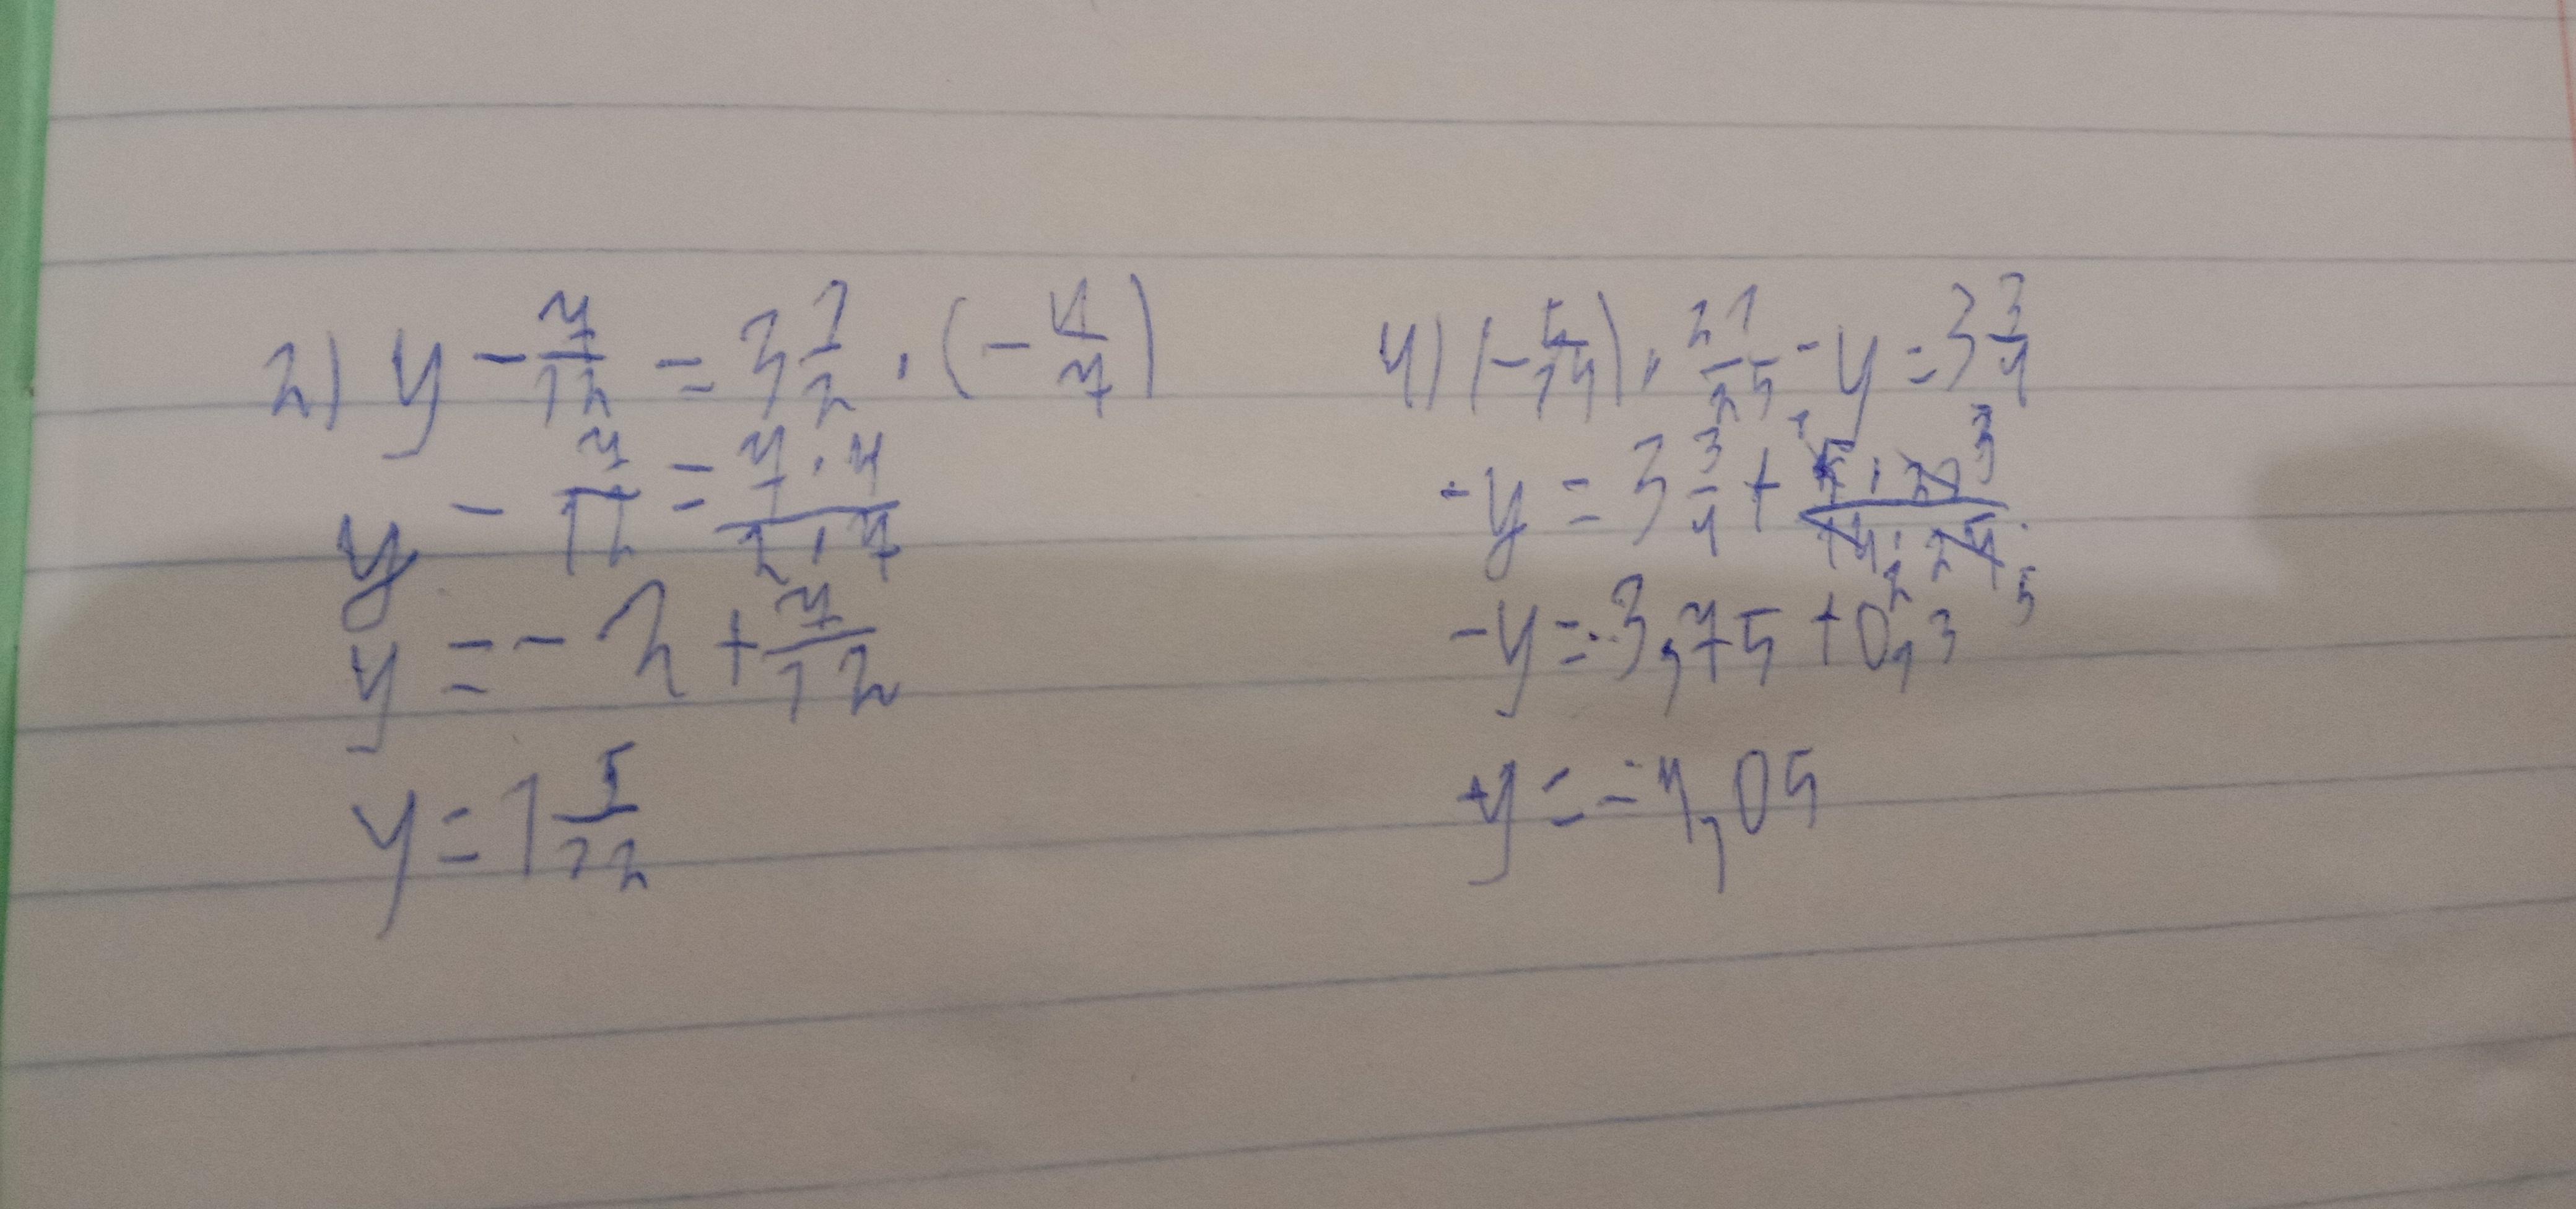 2) y - 7/12 = 3 1/2 · (- 4/7)
y - 7/12 = 7 · 4 / 2 · 7
y = - 2 + 7/12
y = 1 5/12
4) (- 5/14) · 21/25 - y = 3 3/4
- y = 3 3/4 + 5 · 21 / 14 · 25
1 3 2 5
- y = 3,75 + 0,3
y = - 4,05